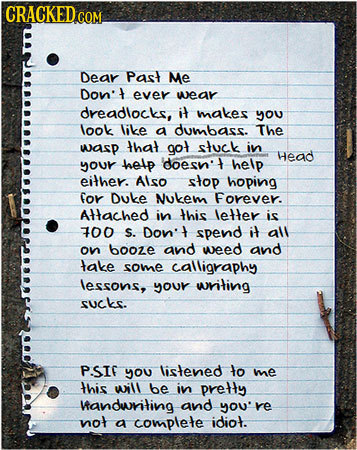 CRACKED.COM
Dear Past Me
Don't ever wear
dreadlocks, it makes you
look like a dumbass. The
wasp that got stuck in
your help doesn't help Head
either. Also stop hoping
for Duke Nukem Forever.
Attached in this letter is
700 $. Don't spend it all
on booze and weed and
take some calligraphy
lessons, your writing
sucks.
P.SIf you listened to me
this will be in pretty
Handwriting and you're
not a complete idiot.